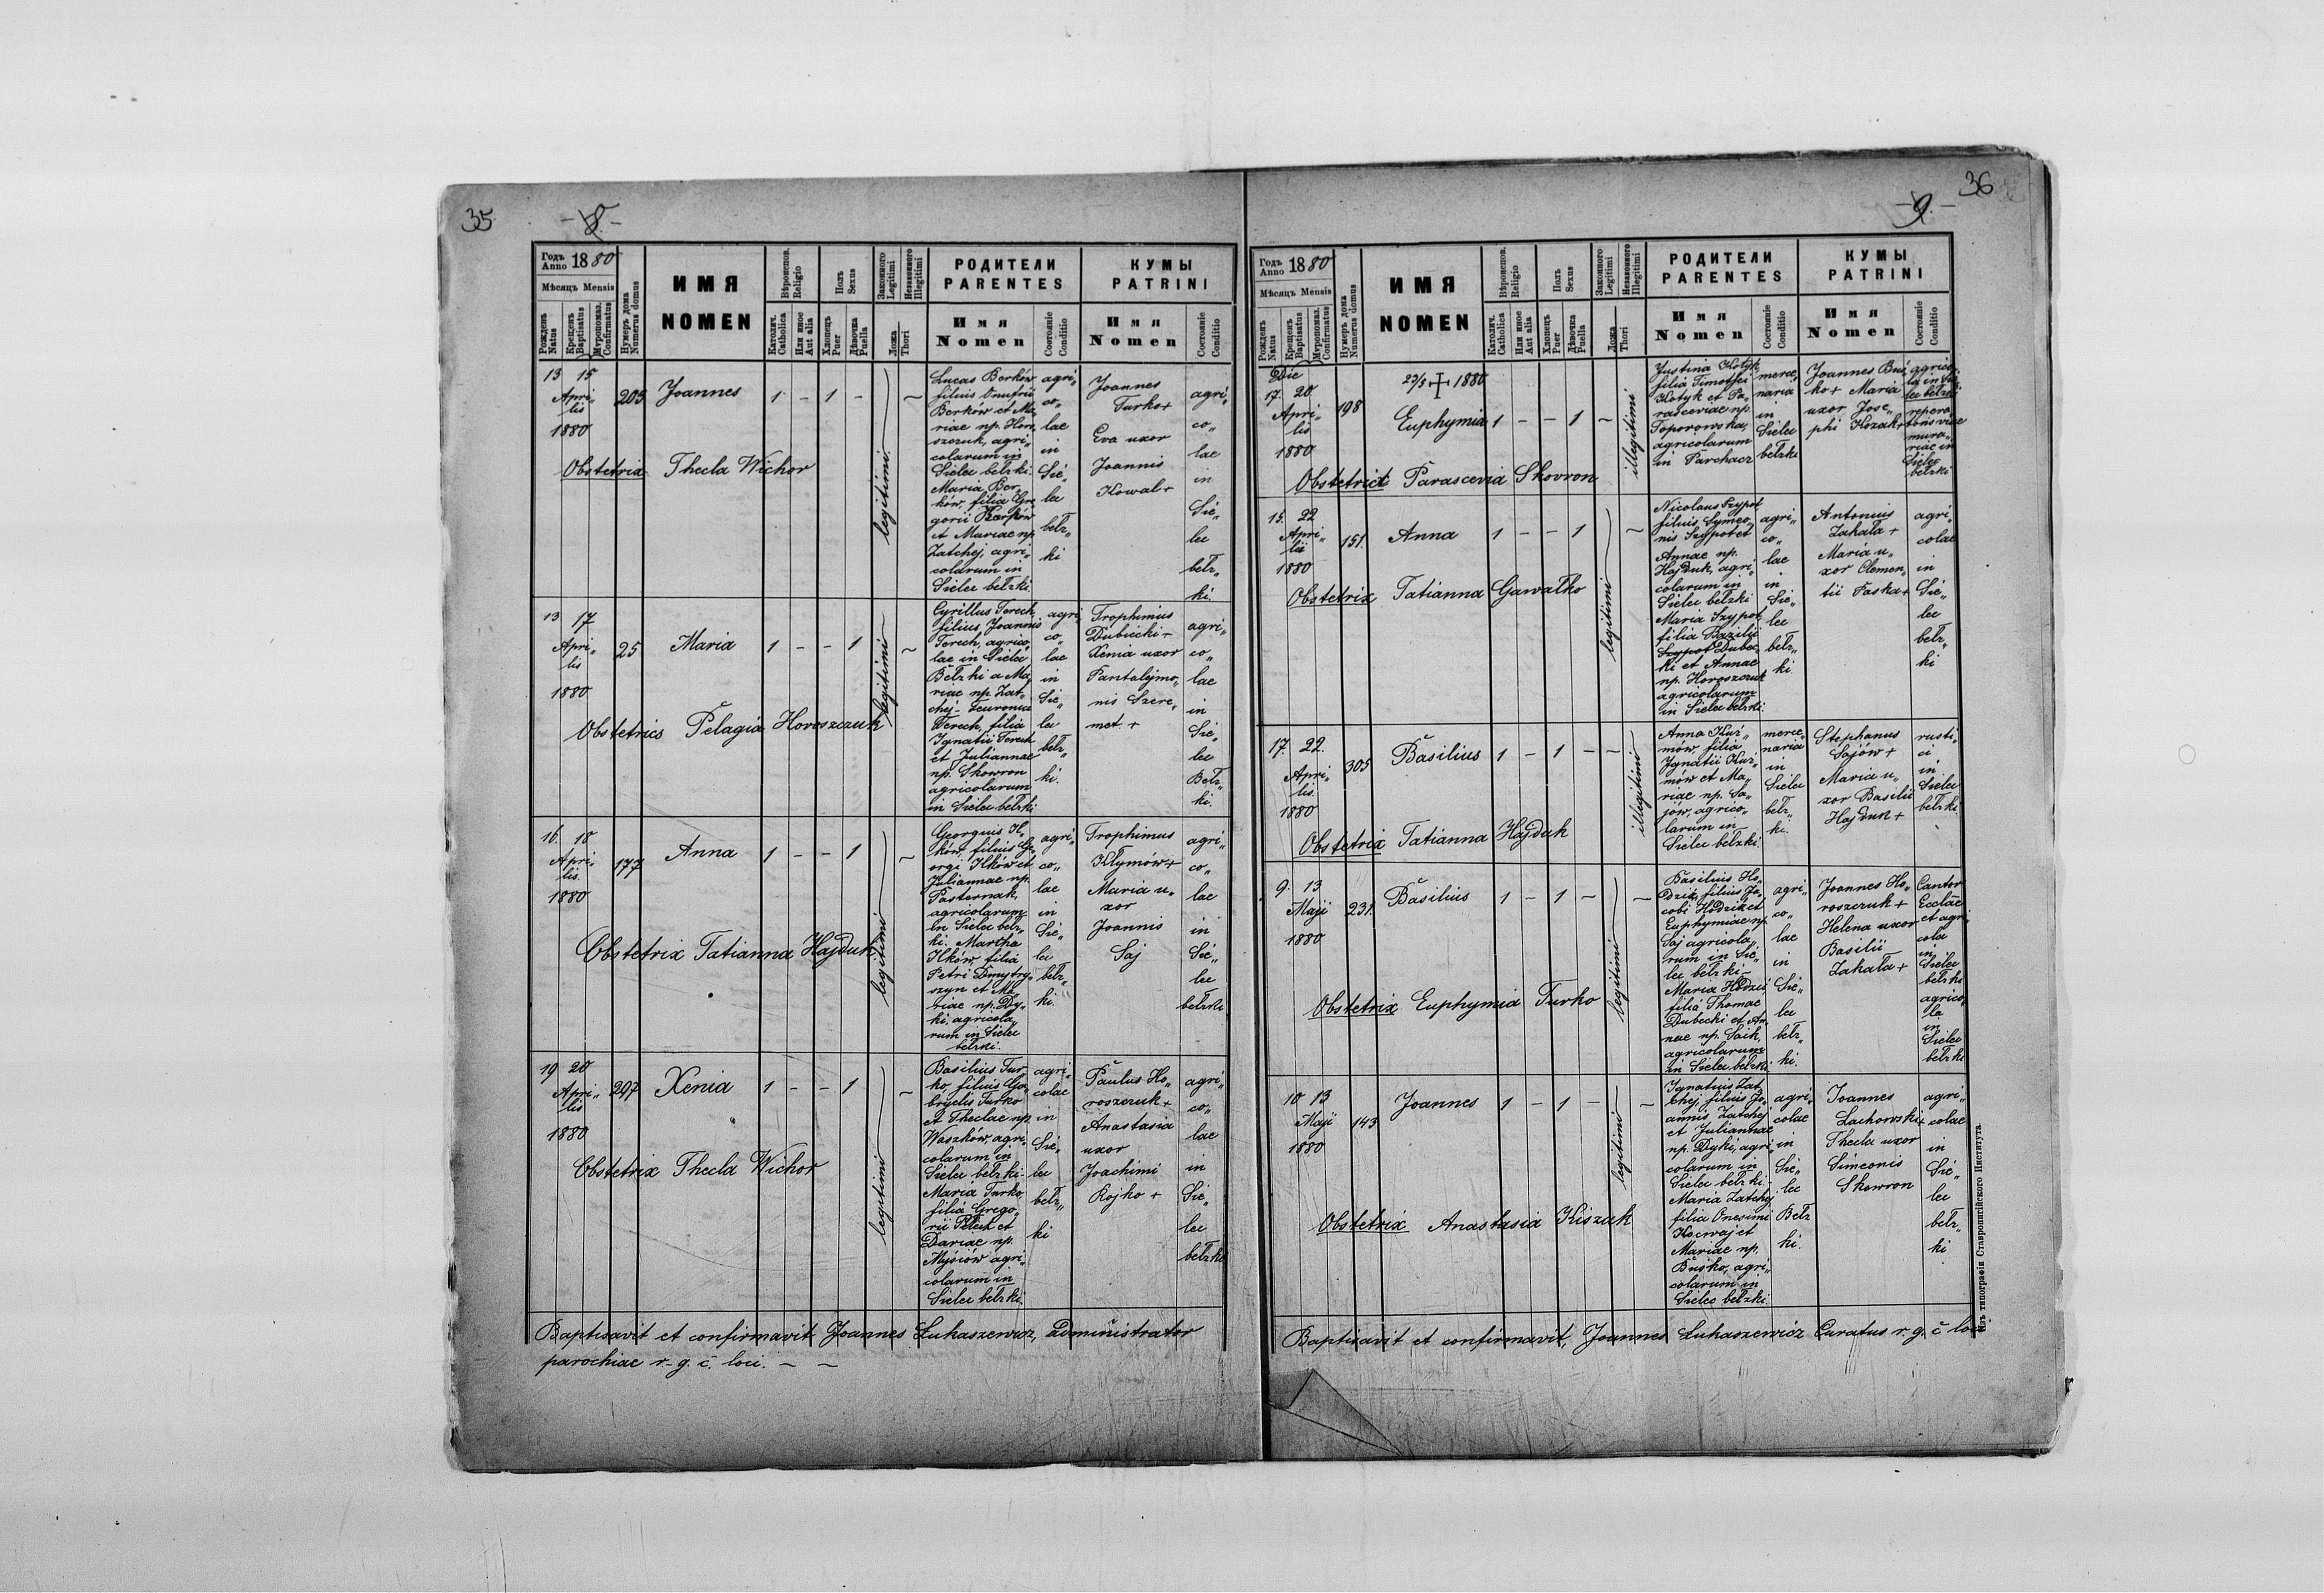 35
-8.-
Годъ Anno 1880
Мѣсяцъ Mensis
Рожденъ Natus
Крещенъ Baptisatus
Мѵропомаз. Confirmatus
Нумеръ дома Numerus domus
ИМЯ
NOMEN
Вѣроиспов. Religio
Католич. Catholica
Или иное Aut alia
Полъ Sexus
Хлопецъ Puer
Дѣвочка Puella
Законного Legitimi
Незаконного Illegitimi
Ложа Thori
РОДИТЕЛИ
PARENTES
Имя
Nomen
Состояніе Conditio
КУМЫ
PATRINI
Имя
Nomen
Состояніе Conditio
13 15
Apri„
lis
1880
203
Joannes
1 - 1 -
legitimi
Lucas Berków
filius Onufrii
Berków et Ma„
riae np. Horo„
szczuk, agri„
colarum in
Sielec bełzki.
Maria Ber„
ków, filia Gre
gorii Karpów
et Mariae np
Zatchej, agri„
colarum in
Sielec bełzki
agri„
co„
lae
in
Sie„
le
bełz„
ki
Joannes
Turko+
Eva uxor
Joannis
Kowal+
agri„
co„
lae
in
Sie„
lec
bełz„
ki.
Obstetrix Thecla Wichor
13 17
Apri„
lis
1880
25
Maria
1 - - 1
legitimi
Cyrillus Terech
filius Joannis
Terech, agrico„
lae in Sielec
Bełzki a Ma„
riae np. Zat„
chej - Feuronia
Terech, filia
Ignatii Terech
et Juliannae
np. Skowron
agricolarum
in Sielec bełzki
agri
co„
lae
in
Sie„
lec
bełz„
ki.
Trophimus
Dubiecki+
Xenia uxor
Pantalejmo„
nis Szere„
met.+
agri„
co„
lae
in
Sie„
lec
Bełz„
ki.
Obstetrics Pelagia Horoszczuk
16. 18
Apri„
lis.
1880
177
Anna
1 - - 1
legitimi
Georgius Il„
ków, filius Ge„
orgi Ilków et
Juliannae np.
Pasternak,
agricolarum
in Sielec bełz„
ki. Martha
Ilków filia
Petri Dmytry„
szyn et Ma„
riae np. Dy„
ki, agricola„
rum in Sielec
bełzki.
agri„
co„
lae
in
Sie„
lec
bełz„
ki.
Trophimus
Kłymów+
Maria u„
xor
Joannis
Saj
agri„
co„
lae
in
Sie„
lec
bełzki
Obstetrix Tatianna Hajduk
19 20
Apri„
lis
1880
297
Xenia
1 - - 1
legitimi
Basilius Tur„
ko, filius Ga„
bryelis Turko
et Theclae np.
Waszków, agri„
colarum in
Sielec bełzki-
Maria Turko
filia Grego„
rii Pełech et
Dariae np.
Mysiów agri„
colarum in
Sielec bełzki.
agri„
colae
in
Sie„
lec
bełz„
ki
Paulus Ho„
roszczuk+
Anastasia
uxor
Joachimi
Kojko +
agri„
co„
lae
in
Sie„
lec
bełzki
Obstetrix Thecla Wichor
Baptisavit et confirmavit Joannes Łukaszewicz, administrator
parochiae r-g. c. loci.
36
-9.-
Годъ Anno 1880
Мѣсяцъ Mensis
Рожденъ Natus
Крещенъ Baptisatus
Мѵропомаз. Confirmatus
Нумеръ дома Numerus domus
ИМЯ
NOMEN
Вѣроиспов. Religio
Католич. Catholica
Или иное Aut alia
Полъ Sexus
Хлопецъ Puer
Дѣвочка Puella
Законного Legitimi
Незаконного Illegitimi
Ложа Thori
РОДИТЕЛИ
PARENTES
Имя
Nomen
Состояніе Conditio
КУМЫ
PATRINI
Имя
Nomen
Состояніе Conditio
Die
17. 20.
Apri„
lis
1880
198
1880
Euphymia
1 - - 1
illegitimi
Justina Kotyk
filia Timothei
Kotyk et Pa„
rasceviae np.
Toporowska,
agricolarum
in Parchacz
merce„
naria
in
Sielec
bełzki
Joannes Buś„
ko+ Maria
uxor Jose„
phi Kozak+
agrico„
la in Sie„
lec bełzki
mura„
riae in
Sielec
bełzki
Obstetrict Parascevia Skovron
15. 22
Apri„
lis
1880
151.
Anna
1 - - 1
legitimi
Nicolaus Szypot
filius Symeo„
nis Szypot et
Annae np.
Hajduk, agri„
colarum in
Sielec bełzki
Maria Szypot
filia Bazilii
Szypot Dubec„
ki et Annae
np. Horoszczuk
agricolarum
in Sielec bełzki.
agri„
co„
lae
in
Sie„
lec
bełz„
ki.
Antonius
Zakała+
Maria u„
xor Clemen„
tii Paska+
agri„
colae
in
Sie„
lec
bełz„
ki
Obstetrix Tatianna Gawałko
17. 22.
Apri„
lis.
1880
305
Basilius
1 - 1 -
illegitimi
Anna Kuź„
mów filia
Ignatii Kuź„
mów et Ma„
riae np. Sa„
jów, agrico„
larum in
Sielec bełzki.
merce„
naria
in
Sielec
bełz„
ki.
Stephanus
Sajów+
Maria u„
xor Basilii
Hajduk+
rusti„
ci
in
Sielec
bełzki
Obstetrix Tatianna Hajduk
9. 13
Maji
1880
231.
Basilius
1 - 1 -
legitimi
Basilius Ho„
dzik, filius Ja„
cobi Hodzik et
Euphymiae np.
Saj agricola„
rum in Sie„
lec bełzki-
Maria Hodzik
filia Thomae
Dubecki et An„
nae np. Saik,
agricolarum
in Sielec bełzki.
agri„
co„
lae
in
Sie„
lec
bełz„
ki.
Joannes Ho„
roszczuk+
Helena uxor
Basilii
Zakała+
Cantor
Ecclae
et agri„
cola
in
Sielec
bełzki
agrico„
la
in
Sielec
bełzki
Obstetrix Euphymia Turko
10 13
Maji
1880
143
Joannes
1 - 1 -
legitimi
Ignatius Zat„
chej filius Jo„
annis Zatchej
et Juliannae
np. Dyki, agri„
colarum in
Sielec bełzki-
Maria Zatchej
filia Onesimi
Kocwaj et
Mariae np.
Buśko, agri„
colarum in
Sielec bełzki.
agri„
colae
in
Sie„
lec
Bełz
ki.
Joannes
Lachowski+
Thecla uxor
Simeonis
Skowron
agri„
colae
in
Sie„
lec
bełz„
ki
Obstetrix Anastasia Kiszak
Baptisavit et confirmavit, Joannes Łukaszewicz Curatus r. g. c loci
Изъ типографіи Ставропигійского Института.